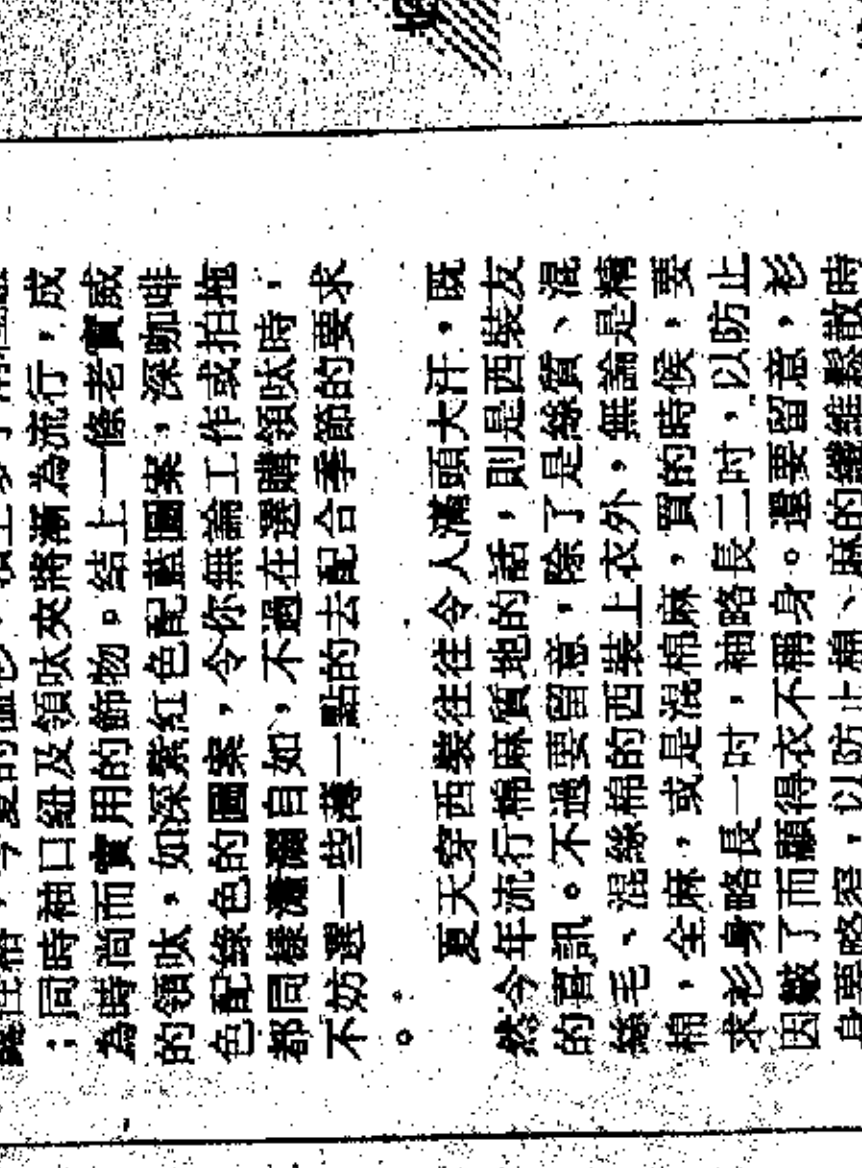 ；同時袖口紐及領呔夾將漸為流行，成
為時尚而實用的飾物。結上一條老實威
的領呔，如深紫紅色配藍圖案，深咖啡
色配綠色的圖案，令你無論工作或拍拖
都同樣瀟灑自如，不過在選購領呔時，
不妨選一些薄一點的去配合季節的要求
。
夏天穿西裝往往令人滿頭大汗，既
然今年流行棉麻質地的話，則是西裝友
的喜訊。不過要留意，除了是絲質、混
絲毛、混絲棉的西裝上衣外，無論是精
棉，全麻，或是混棉麻，買的時候，要
求衫身略長一吋，袖略長二吋，以防止
因皺了而顯得衣不稱身。還要留意，衫
身要略窄，以防止棉、麻的纖維鬆散時